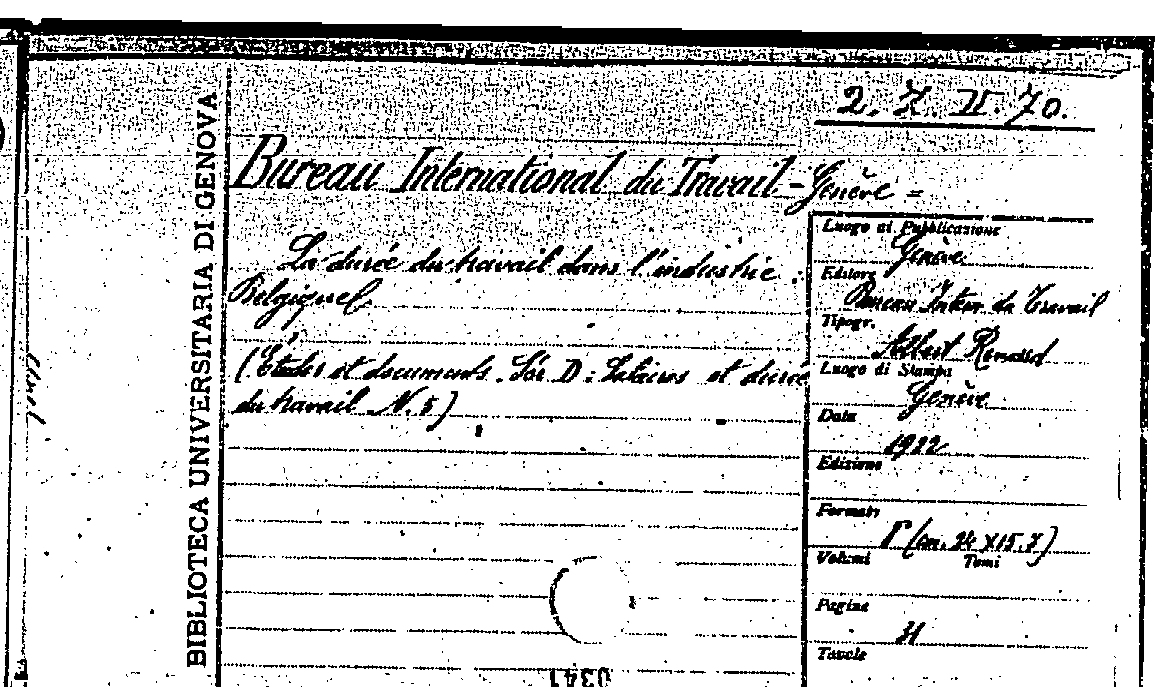 2. Z. II. 70.
BIBLIOTECA UNIVERSITARIA DI GENOVA
Bureau International du Travail - Genève =
La durée du travail dans l'industrie.
Belgique.
(Études et documents. Sér D: Salaires et durée
du travail N. 5)
Luogo di Pubblicazione
Genève
Editore
Bureau Intern. du Travail
Tipogr.
Albert
Luogo di Stampa
Genève
Data
1922
Edizione
Formato
(cm. 24 X 15.7)
Volumi Tomi
Pagine
Tavole
0341